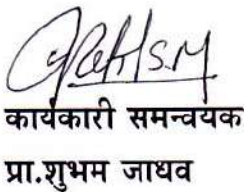 कार्यकारी समन्वयक
प्रा.शुभम जाधव